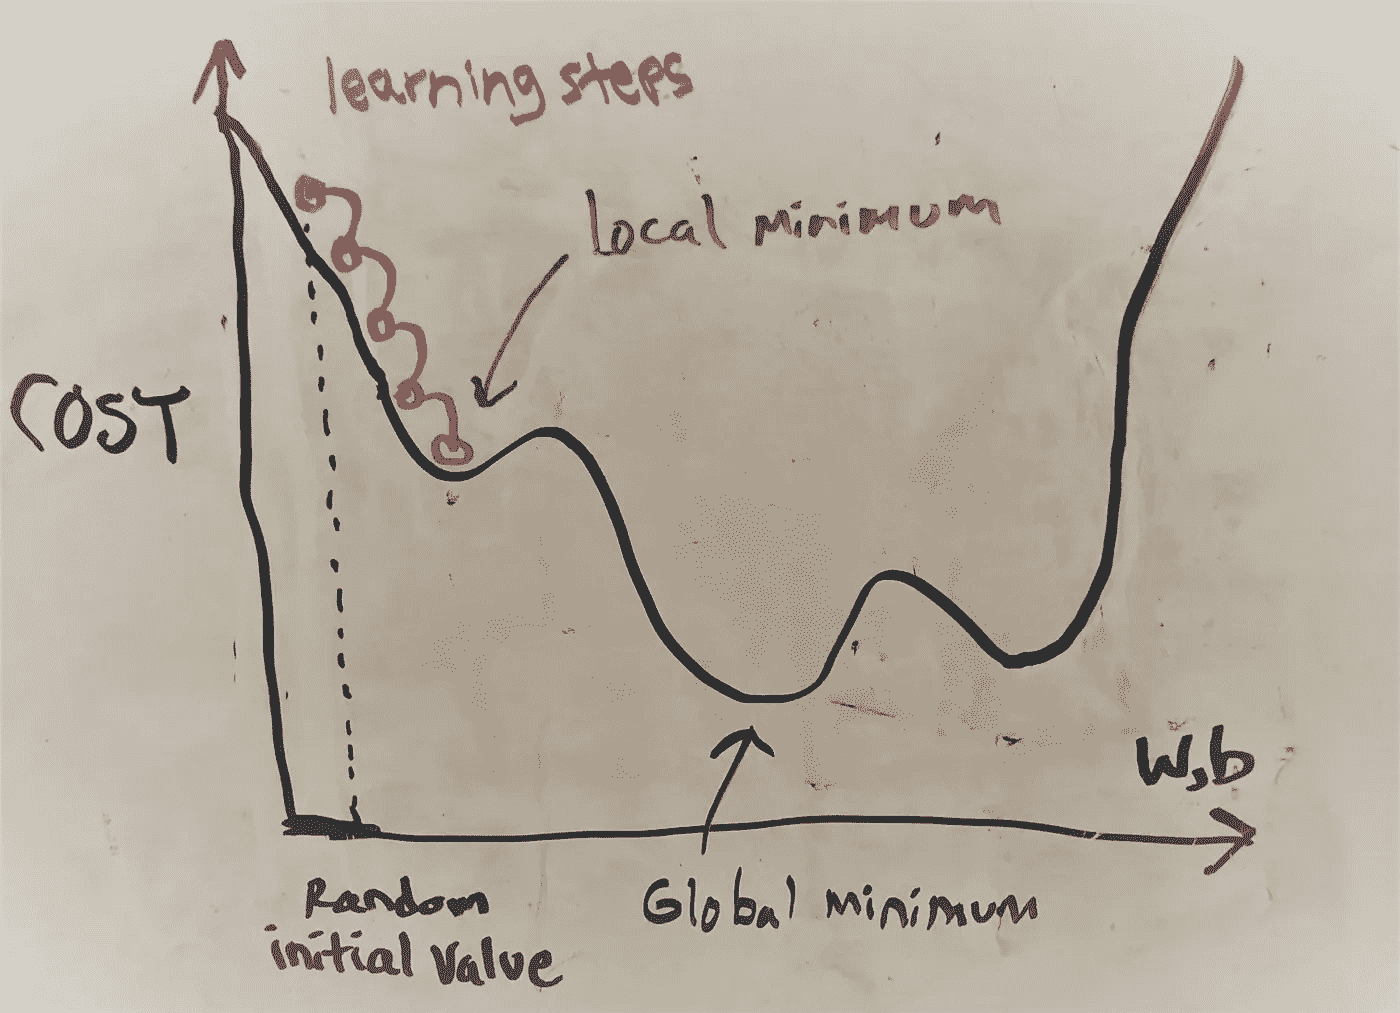 learning steps
Local minimum
COST
W,b
Random
initial value
Global minimum